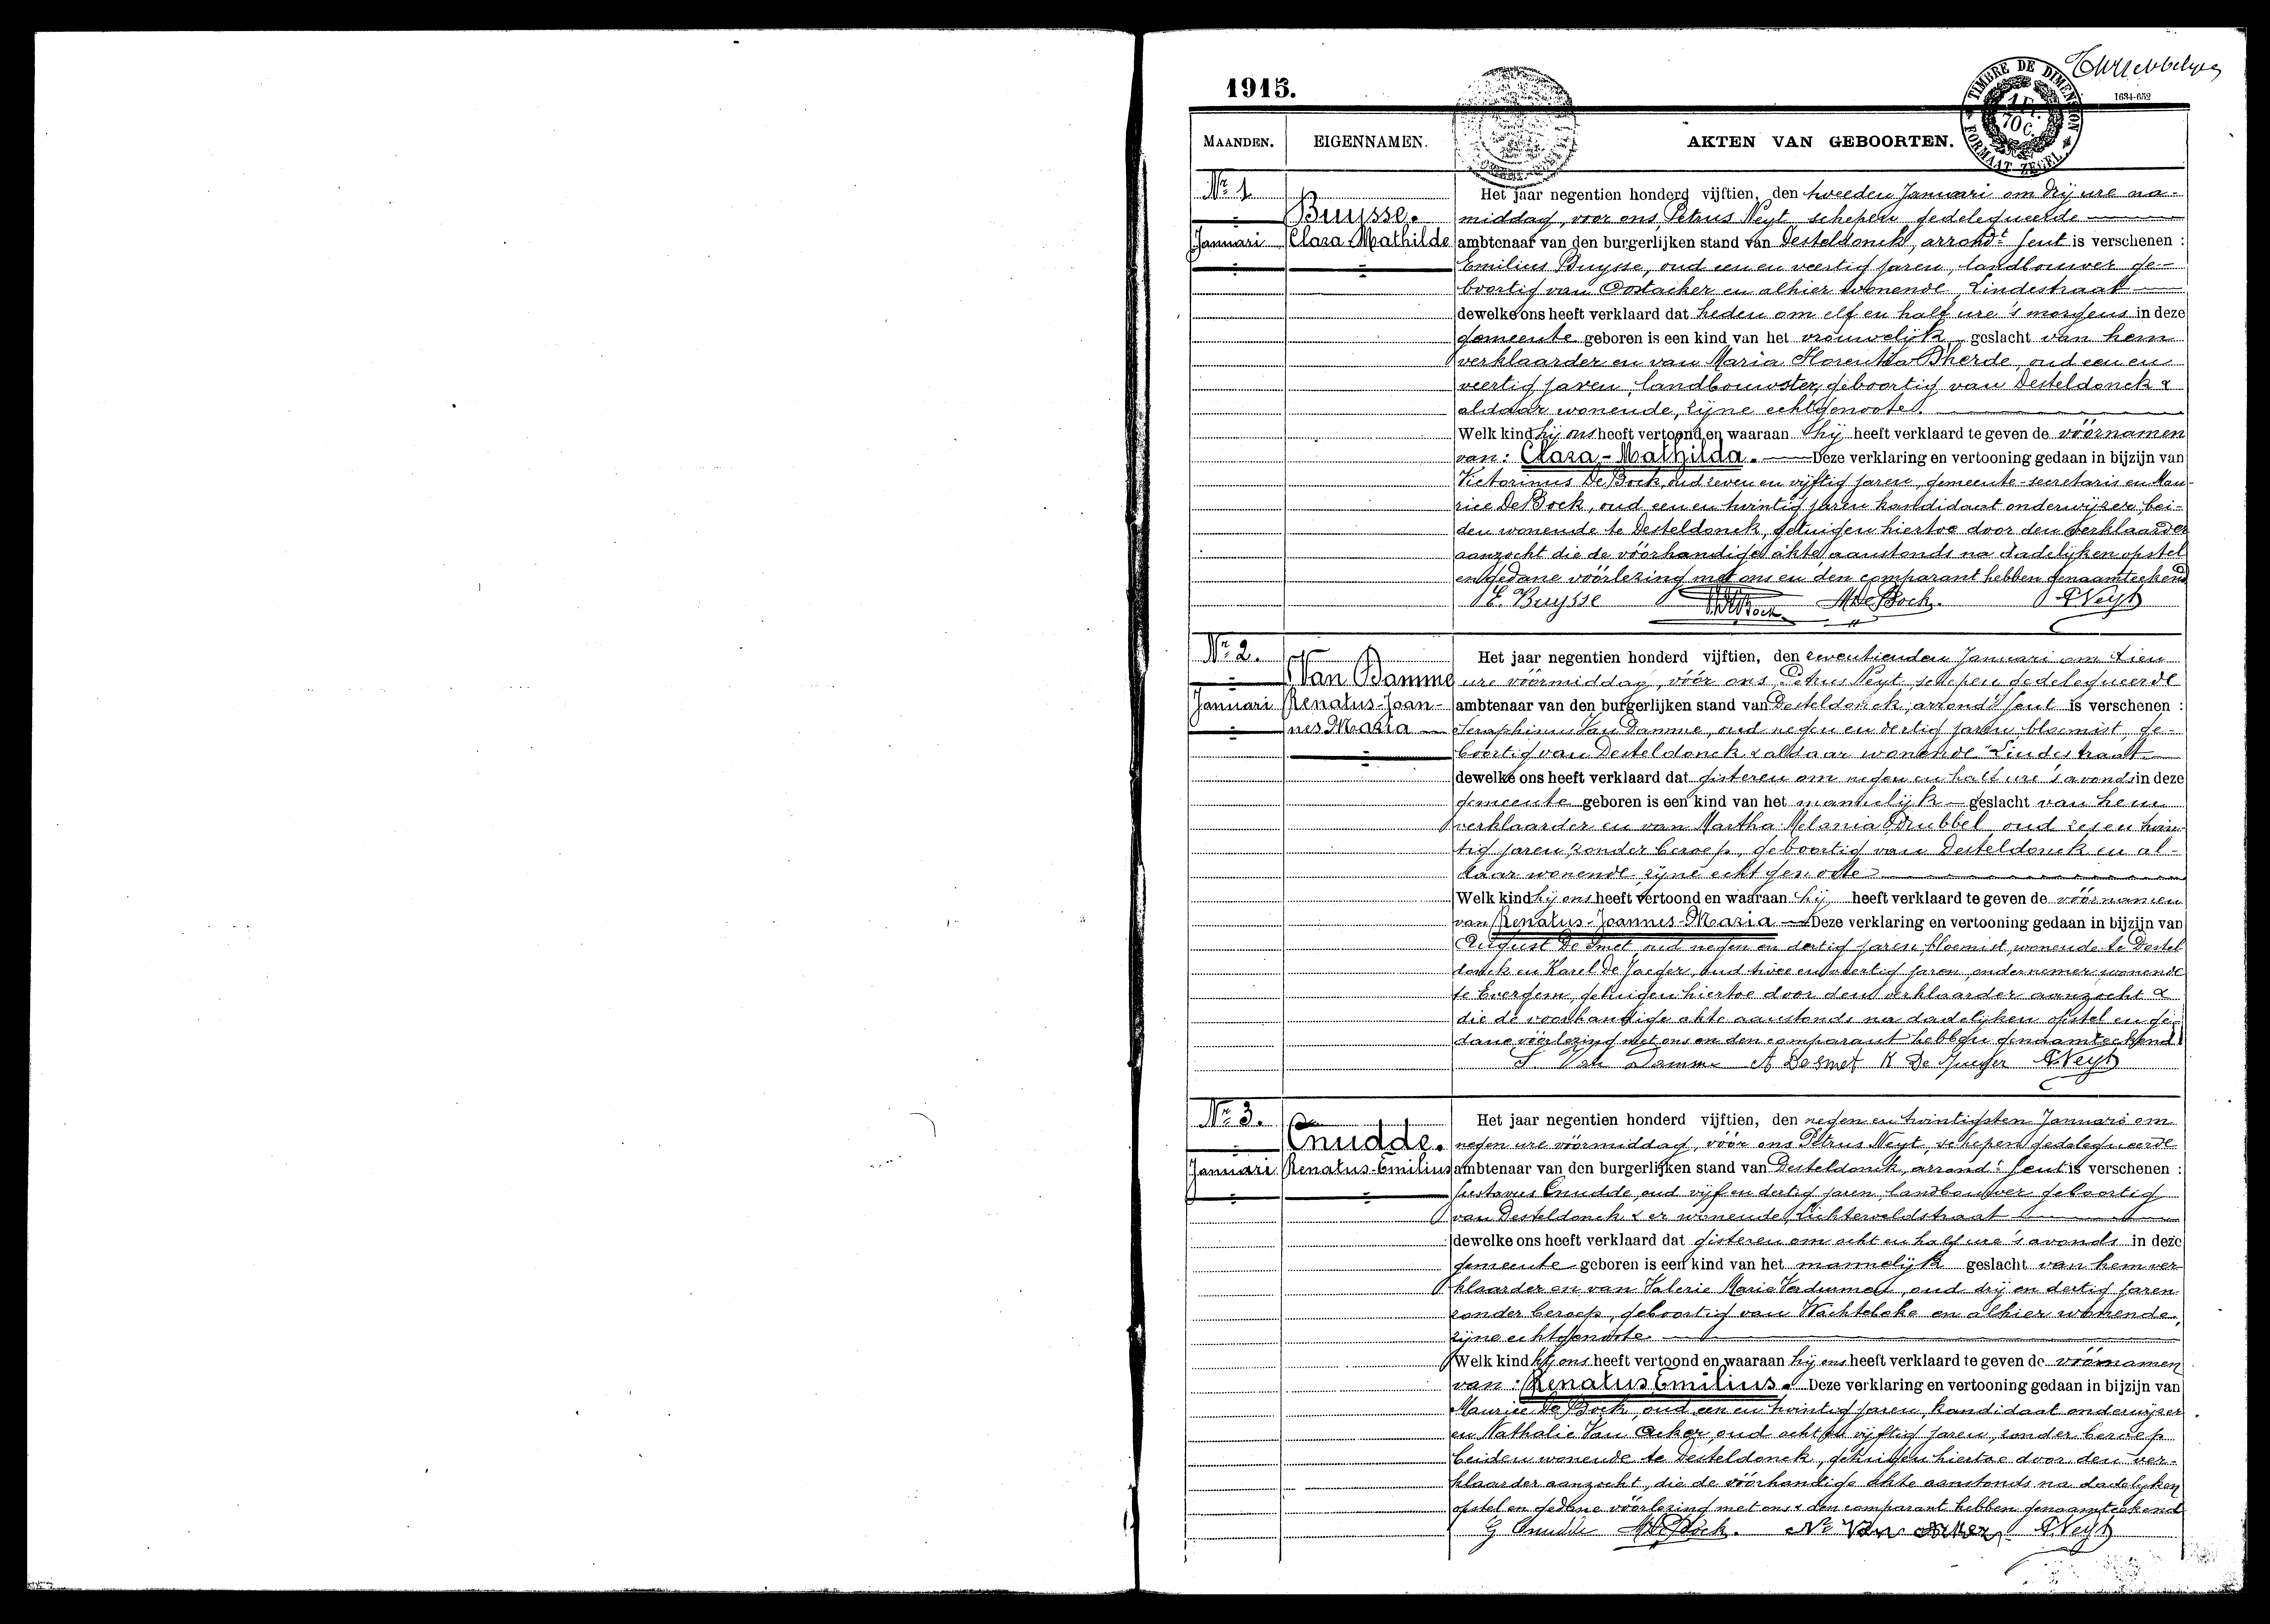 1915.
1634-652
TIMBRE DE DIMENSION
1 F.
70 C.
FORMAAT ZEGEL
MAANDEN. EIGENNAMEN. AKTEN VAN GEBOORTEN.
Nr 1
Januari
Buysse.
Clara Mathilde
Het jaar negentien honderd vijftien, den tweeden Januari om drij ure na-
middag, voor ons, Petrus Neyt schepen gedelegueerde
ambtenaar van den burgerlijken stand van Desteldonck, arrondt Gent is verschenen :
Emilius Buysse, oud een en veertig jaren, landbouwer ge-
boortig van Oostacker en alhier wonende, Lindestraat
dewelke ons heeft verklaard dat heden om elf en half ure 's morgens in deze
gemeente geboren is een kind van het vrouwelijk geslacht van hem
verklaarder en van Maria Florentia Dherde, oud een en
veertig jaren, landbouwster, geboortig van Desteldonck &
aldaar wonende, zijne echtgenoote.
Welk kind hij ons heeft vertoond en waaraan hij heeft verklaard te geven de vóórnamen
van: Clara-Mathilda. Deze verklaring en vertooning gedaan in bijzijn van
Victorinus De Bock, oud zeven en vijftig jaren, gemeente-secretaris en Mau-
rice De Bock, oud een en twintig jaren kandidaat onderwijzer, bei-
den wonende te Desteldonck, getuigen hiertoe door den verklaarder
aanzocht die de vóórhandige akte aanstonds na dadelijken opstel
en gedane vóórlezing met ons en den comparant hebben genaamteekend
E. Buysse De Bock M De Bock. P Neyt
Nr 2.
Januari
Van Damme
Renatus-Joan-
nes Maria
Het jaar negentien honderd vijftien, den zeventienden Januari om tien
ure vóórmiddag, vóór ons, Petrus Neyt, schepen gedelegueerde
ambtenaar van den burgerlijken stand van Desteldonck, arrondt Gent is verschenen :
Seraphinus Van Damme, oud negen en dertig jaren, bloemist, ge-
boortig van Desteldonck & aldaar wonende Lindestraat
dewelke ons heeft verklaard dat gisteren om negen en half ure 's avonds in deze
gemeente geboren is een kind van het mannelijk geslacht van hem
verklaarder en van Martha Melania Drubbel oud zes en twin-
tig jaren, zonder beroep, geboortig van Desteldonck en al-
daar wonende zijne echtgenoote
Welk kind hij ons heeft vertoond en waaraan hij heeft verklaard te geven de vóórnamen
van Renatus-Joannes-Maria Deze verklaring en vertooning gedaan in bijzijn van
August De Smet, oud negen en dertig jaren, bloemist, wonende te Destel
donck en Karel De Jaeger, oud twee en veertig jaren, ondernemer wonende
te Evergem, getuigen hiertoe door den verklaarder aanzocht &
die de voorhandige akte aanstonds na dadelijken opstel en ge-
dane vóórlezing met ons en den comparant hebben genaamteekend
S. Van Damme A De smet K De Jaeger P Neyt
Nr 3.
Januari
Cnudde.
Renatus-Emilius
Het jaar negentien honderd vijftien, den negen en twintigsten Januari om
negen ure vóórmiddag, vóór ons Petrus Neyt, schepen gedelegueerde
ambtenaar van den burgerlijken stand van Desteldonck, arrondt Gent is verschenen :
Gustavus Cnudde, oud vijf en dertig jaren, landbouwer geboortig
van Desteldonck & er wonende, Lichterveldstraat
dewelke ons heeft verklaard dat gisteren om acht en half ure 's avonds in deze
gemeente geboren is een kind van het mannelijk geslacht van hem ver-
klaarder en van Valerie Marie Verdurmen, oud drij en dertig jaren
zonder beroep, geboortig van Wachtebeke en alhier wonende,
zijne echtgenoote.
Welk kind hij ons heeft vertoond en waaraan hij ons heeft verklaard te geven de vóórnamen
van: Renatus Emilius. Deze verklaring en vertooning gedaan in bijzijn van
Maurice De Bock, oud een en twintig jaren, kandidaat onderwijzer
en Nathalie Van Acker, oud acht en vijftig jaren, zonder beroep
beiden wonende te Desteldonck, getuigen hiertoe door den ver-
klaarder aanzocht, die de vóórhandige akte aanstonds na dadelijken
opstel en gedane vóórlezing met ons & den comparant hebben genaamteekend
G Cnudde M De Bock. N. Van Acker P Neyt